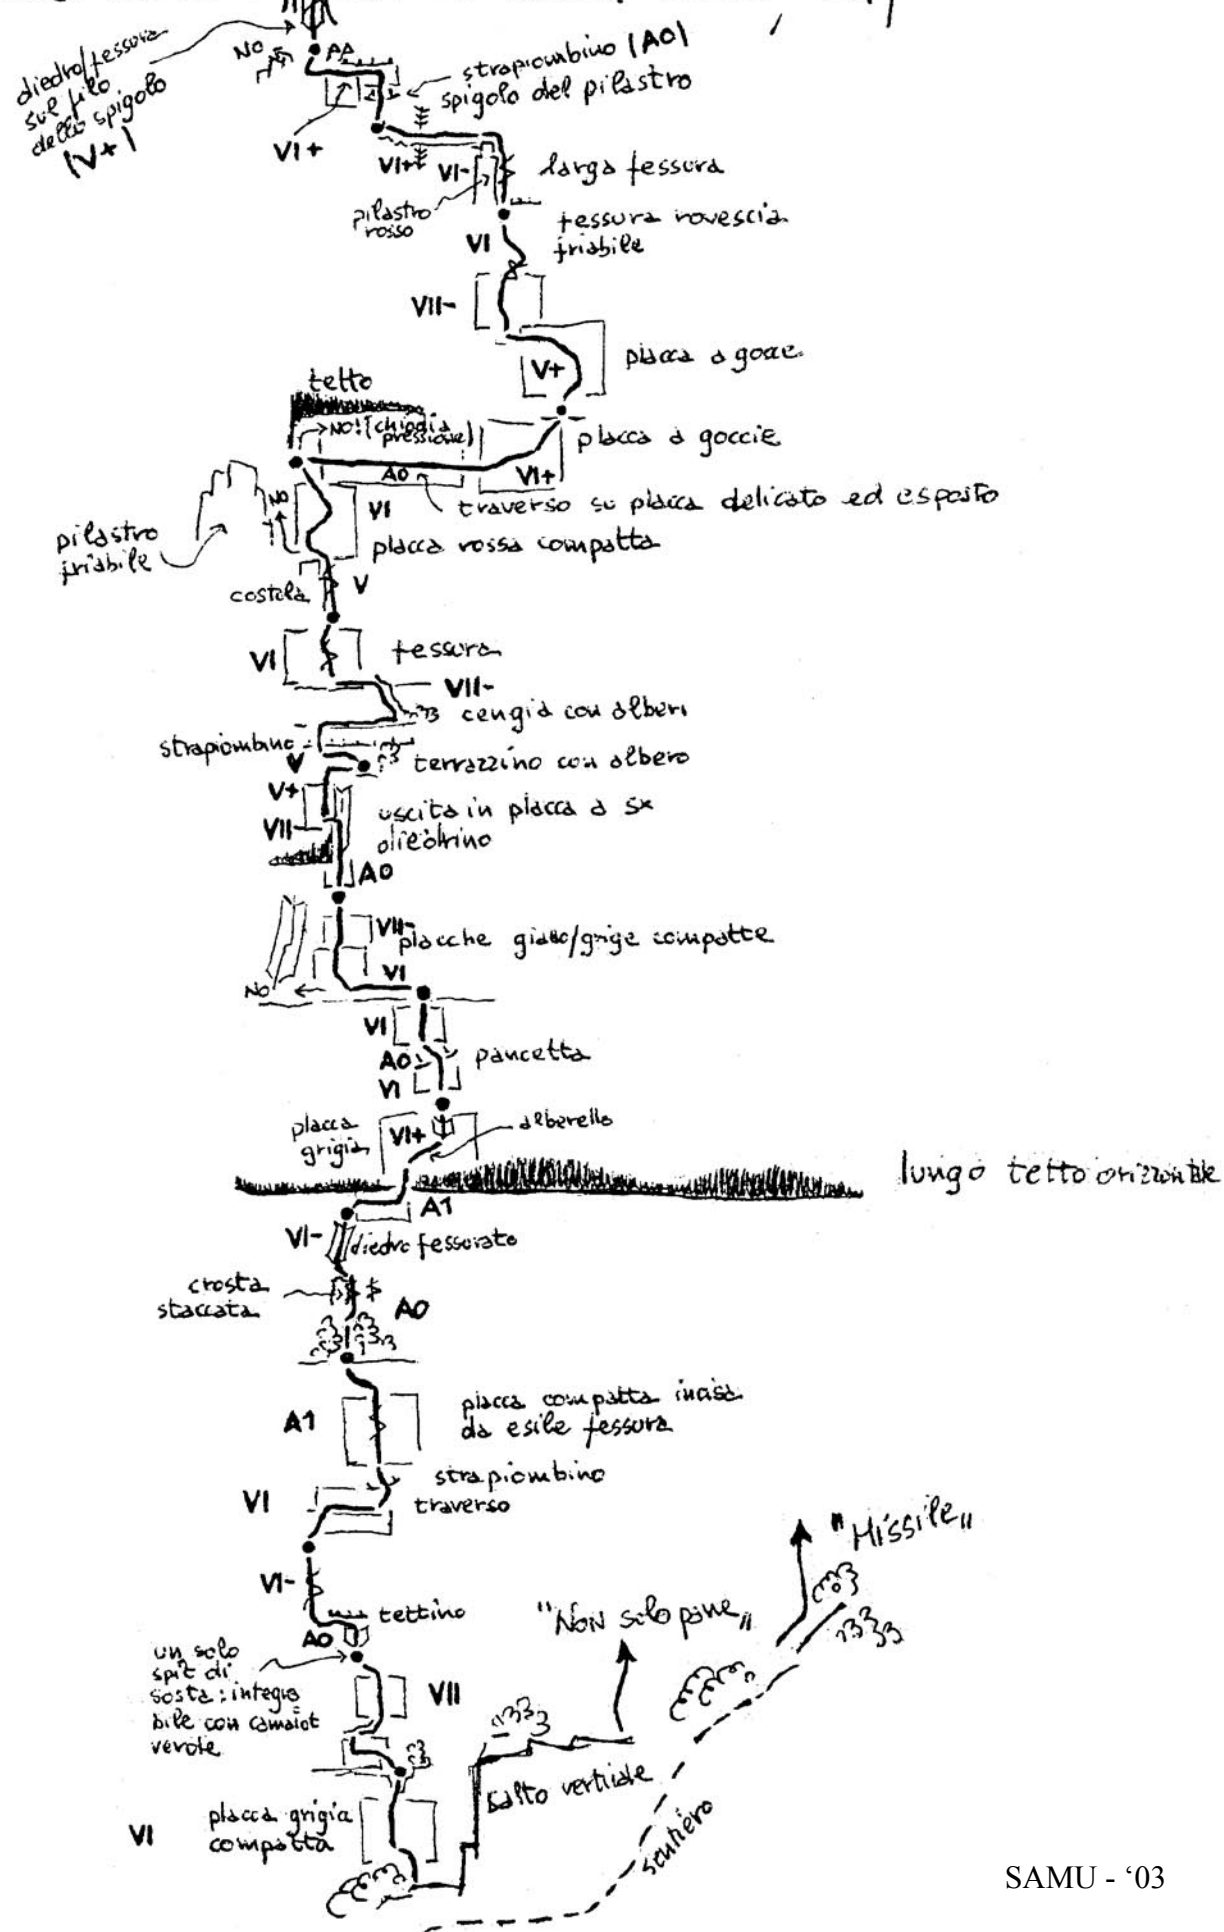 diedro/fessura
sul filo
dello spigolo
(V+)
NO
strapiombino (A0)
spigolo del pilastro
VI+
VI+
VI-
larga fessura
pilastro
rosso
fessura rovescia
friabile
VI
VII-
V+
placca a gocce
tetto
NO! (chiodi a
pressione)
placca a goccie
A0
VI+
NO
VI
traverso su placca delicato ed esposto
pilastro
friabile
placca rossa compatta
costola
V
VI
fessura
VII-
cengia con alberi
strapiombino
V
terrazzino con albero
V+
uscita in placca a sx
VII
diedrino
A0
VII-
placche giallo/grige compatte
VI
NO
VI
A0
pancetta
VI
placca
grigia
VI+
alberello
lungo tetto orizzontale
A1
VI-
diedro fessurato
crosta
staccata
A0
A1
placca compatta incisa
da esile fessura
strapiombino
VI
traverso
"Missile"
VI-
tettino
"Non solo pane"
A0
un solo
spit di
sosta: integra=
bile con camalot
verde
VII
salto verticale
VI
placca grigia
compatta
sentiero
SAMU - ‘03